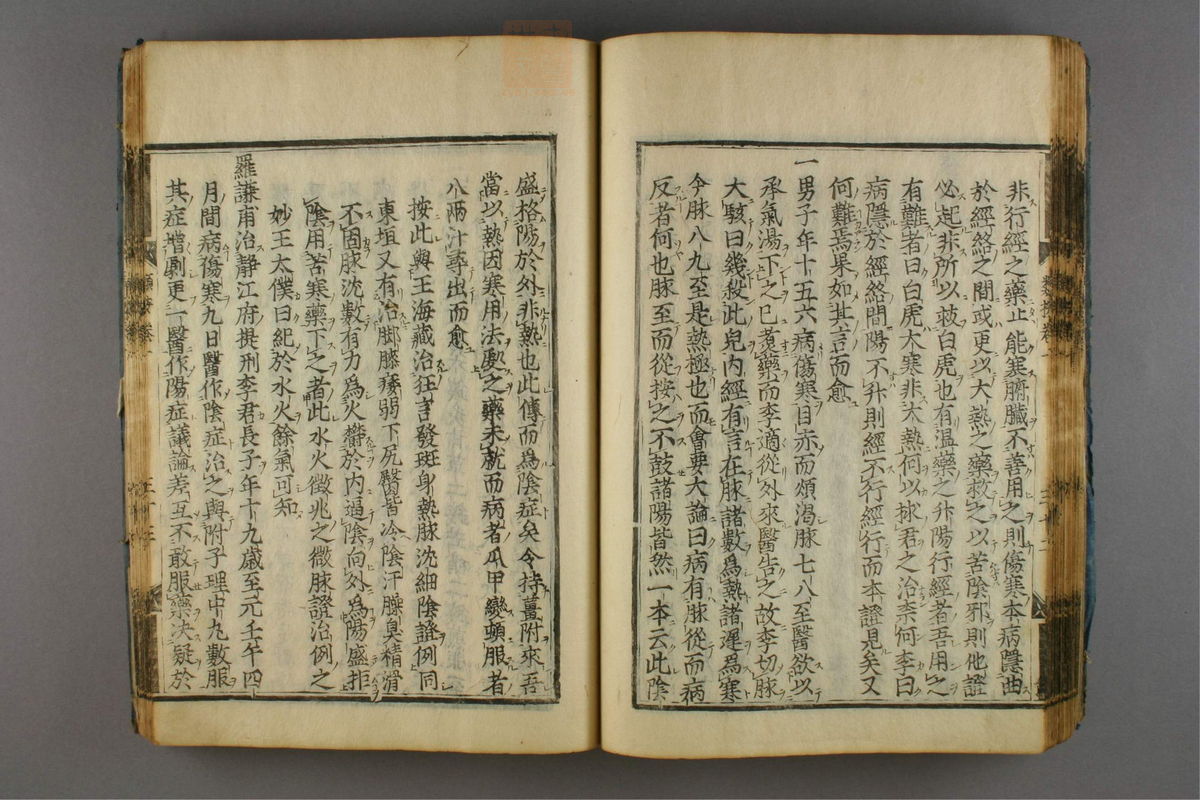 非行經之藥止能寒腑臟不善用之則傷寒本病隱曲
於經絡之間或更以大熱之藥救之以苦陰邪則他證
必起非所以救白虎也有温藥之升陽行經者吾用之
有難者曰白虎大寒非大熱何以救君之治柰何李曰
病隱於經絡間陽不升則經不行經行而本證見矣又
何難焉果如其言而愈
一男子年十五六病傷寒目赤而煩渴脉七八至醫欲以
承氣湯下之已煮藥而李適從外來醫告之故李切脉
大駭曰幾殺此兒内經有言在脉諸數爲熱諸遲爲寒
今脉八九至是熱極也而會要大論曰病有脉從而病
反者何也脉至而從按之不鼓諸陽皆然一本云此陰
盛格陽於外非熱也此傳而爲陰症矣令持薑附來吾
當以熱因寒用法處之藥未就而病者爪甲變頓服者
八兩汗尋出而愈
按此與王海藏治狂言發斑身熱脉沈細陰證例同
東垣又有治脚膝痿弱下尻臀皆冷陰汗臊臭精滑
不固脉沈數有力爲火欝於内逼陰向外爲陽盛拒
陰用苦寒藥下之者此水火徵兆之微脉證治例之
妙王太僕曰紀於水火餘氣可知
羅謙甫治静江府提刑李君長子年十九歳至元壬午四
月間病傷寒九日醫作陰症治之與附子理中丸數服
其症增劇更一醫作陽症議論差互不敢服藥决疑於